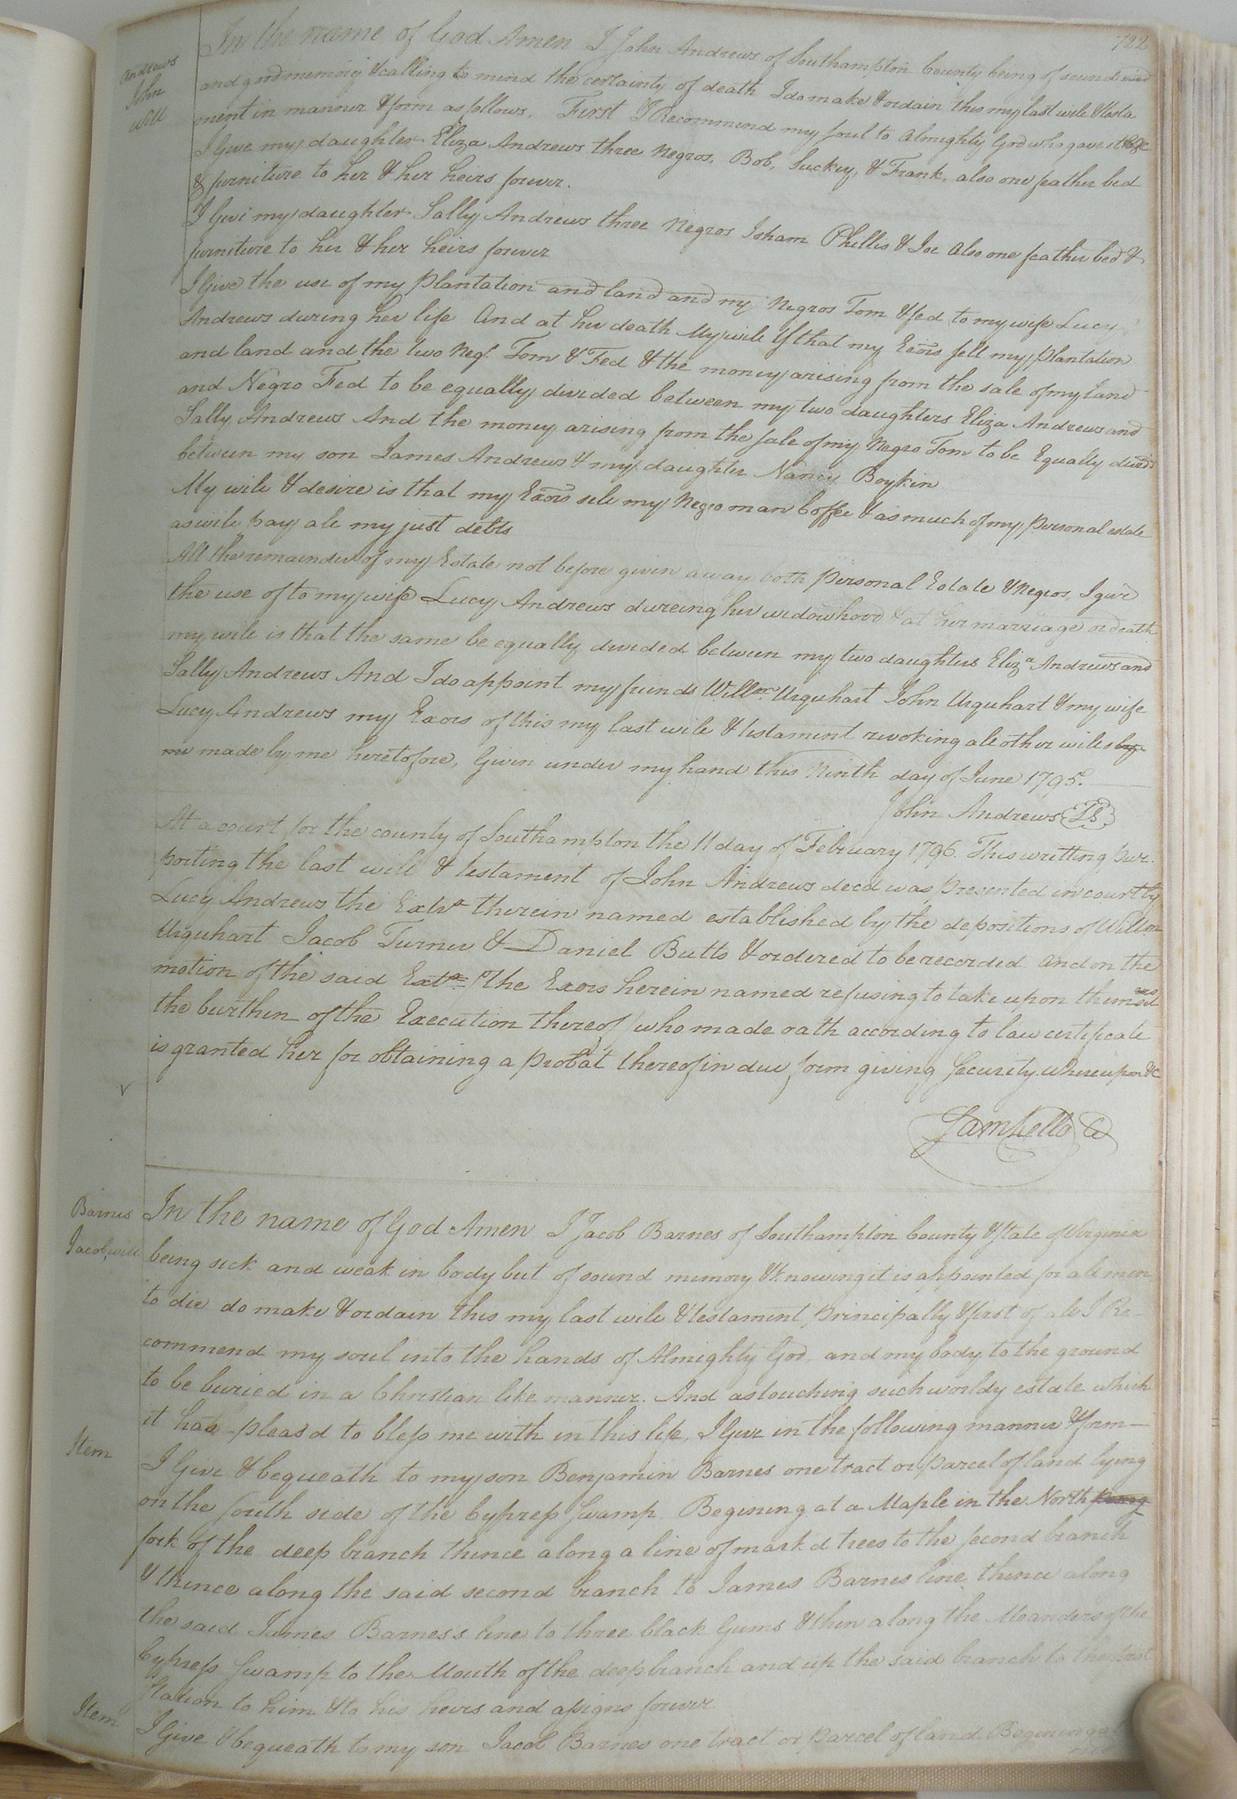 722
Andrews
John
will
In the name of God Amen I John Andrews of Southampton County being of sound mind
and good memory & calling to mind the certainty of death I do make & ordain this my last will & testa
ment in manner & form as follows. First I Recommend my soul to Almighty God who gave it &c
I Give my daughter Eliza Andrews three negros, Bob, Suckey, & Frank, also one feather bed
& furniture to her & her heirs forever.
I Give my daughter Sally Andrews three Negros Isham Phillis & Joe Also one feather bed &
furniture to her & her heirs forever
I Give the use of my Plantation and land and my Negros Tom & Fed to my wife Lucy
Andrews during her life And at her death My will is that my Exors sell my plantation
and land and the two Negs. Tom & Fed & the money arising from the sale of my land
and Negro Fed to be equally divided between my two daughters Eliza Andrews and
Sally Andrews And the money arising from the sale of my Negro Tom to be Equally divid
between my son James Andrews & my daughter Nancy Boykin
My will & desire is that my Exors sell my Negro man Coffee & as much of my personal estate
as will pay all my just debts
All the remainder of my Estate not before given away both personal Estate & Negros, I give
the use of to my wife Lucy Andrews dureing her widowhood & at her marriage or death
my will is that the same be equally divided between my two daughters Eliza Andrews and
Sally Andrews And I do appoint my friends Willm Urquhart John Urquhart & my wife
Lucy Andrews my Exors of this my last will & testament revoking all other wills by
me made by me heretofore, Given under my hand this Ninth day of June 1795.
John Andrews LS
At a court for the county of Southampton the 11 day of February 1796 This writting pur-
porting the last will & testament of John Andrews decd was presented in court by
Lucy Andrews the Extrx therein named established by the depositions of Willm
Urquhart Jacob Turner & Daniel Butts & ordered to be recorded And on the
motion of the said Extrx The Exors herein named refusing to take upon themselves
the burthen of the Execution thereof who made oath according to law certificate
is granted her for obtaining a probat thereof in due form giving Security whereupon &c
Saml Kello C
Barnes
Jacob, will
In the name of God Amen I Jacob Barnes of Southampton County & State of Virginia
being sick and weak in body but of sound memory & knowing it is appointed for all men
to die do make & ordain this my last will & testament, Principally & first of all I Re-
commend my soul into the hands of Almighty God and my body to the ground
to be buried in a Christian like manner. And as touching such worldy estate which
it has pleasd to bless me with in this life, I Give in the following manner & form —
Item
I Give & bequeath to my son Benjamin Barnes one tract or parcel of land lying
on the South side of the Cypress Swamp Begining at a Maple in the North
fork of the deep branch thence along a line of markd trees to the second branch
& thence along the said second branch to James Barnes line thence along
the said James Barness line to three black Gums & then along the Meanders of the
Cypress Swamp to the Mouth of the deep branch and up the said branch to the first
station to him & to his heirs and assigns forever
Item
I Give & bequeath to my son Jacob Barnes one tract or Parcel of land Begining